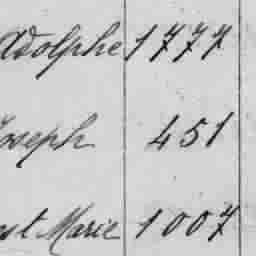 Adolphe 1777
Joseph 451
st Marie 1007